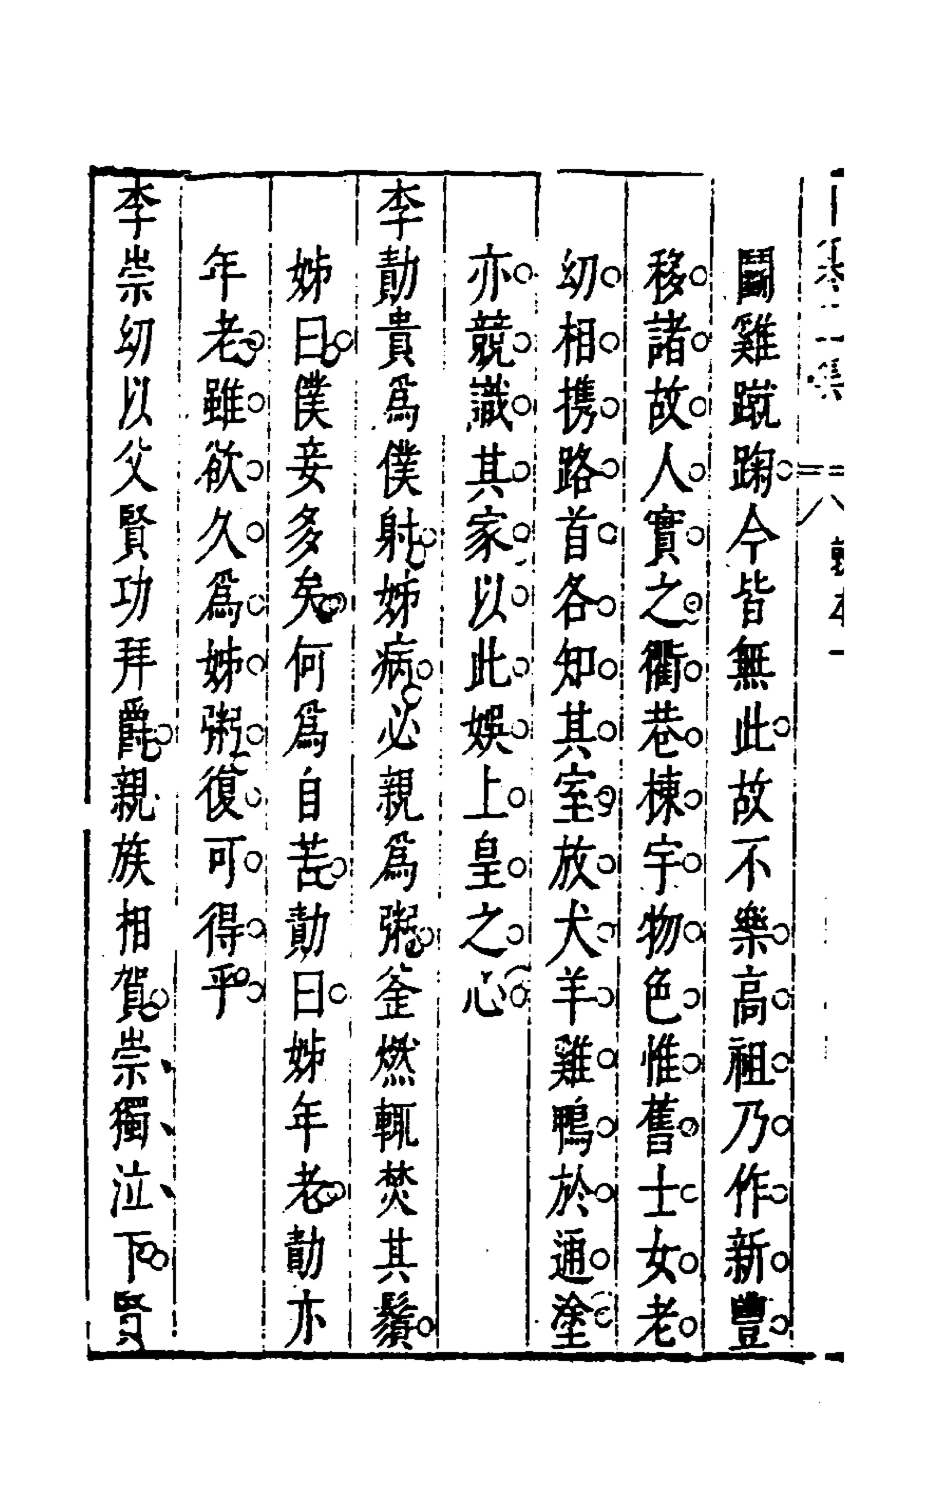 鬬雞蹴踘今皆無此故不樂高祖乃作新豐
移諸故人實之衢巷棟宇物色惟舊士女老
幼相携路首各知其室放犬羊雞鴨於通塗
亦競識其家以此娛上皇之心
李勣貴爲僕射姊病必親爲粥釜燃輒焚其鬚
姊曰僕妾多矣何爲自苦勣曰姊年老勣亦
年老雖欲久爲姊粥復可得乎
李崇幼以父賢功拜爵親族相賀崇獨泣下賢